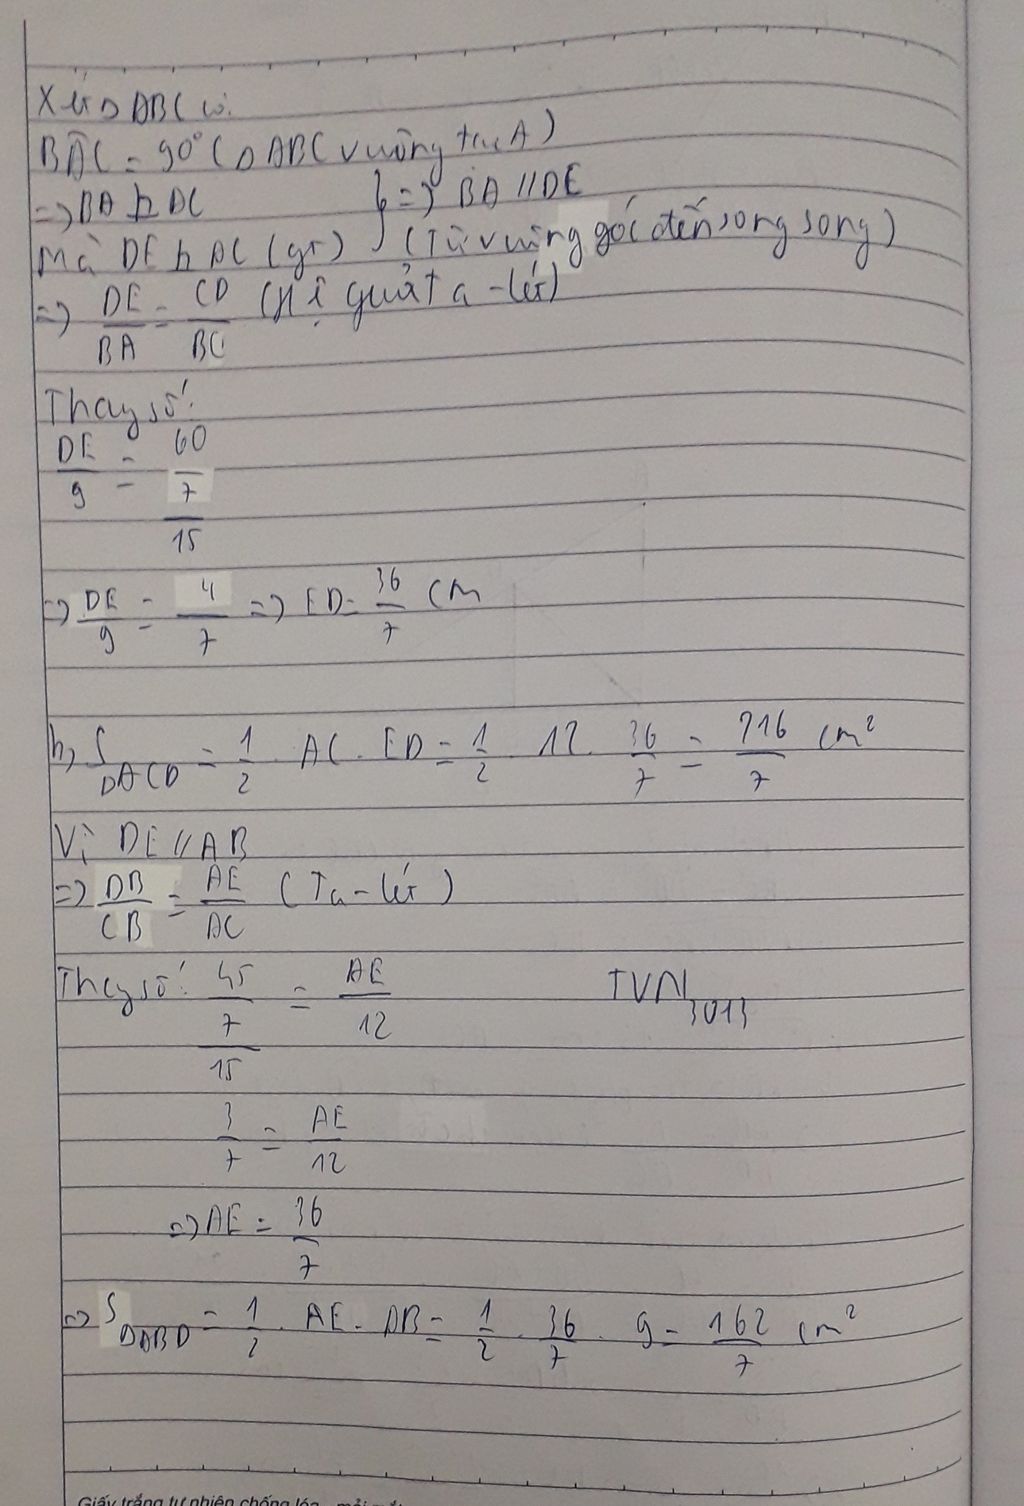 Xét Δ ABC có:
BÂC = 90° (Δ ABC vuông tại A)
=> BA ⊥ AC
Mà DE ⊥ AC (gt)
} => BA // DE
(Từ vuông góc đến song song)
=> DE/BA = CD/BC (Hệ quả Ta-lét)
Thay số:
DE/9 = (60/7)/15
=> DE/9 = 4/7 => ED = 36/7 cm
b, S ΔACD = 1/2 . AC . ED = 1/2 . 12 . 36/7 = 216/7 cm²
Vì DE // AB
=> DB/CB = AE/AC (Ta-lét)
Thay số: (45/7)/15 = AE/12
TVN3013
3/7 = AE/12
=> AE = 36/7
=> S ΔABD = 1/2 . AE . AB = 1/2 . 36/7 . 9 = 162/7 cm²
Giấy trắng tự nhiên chống lóa